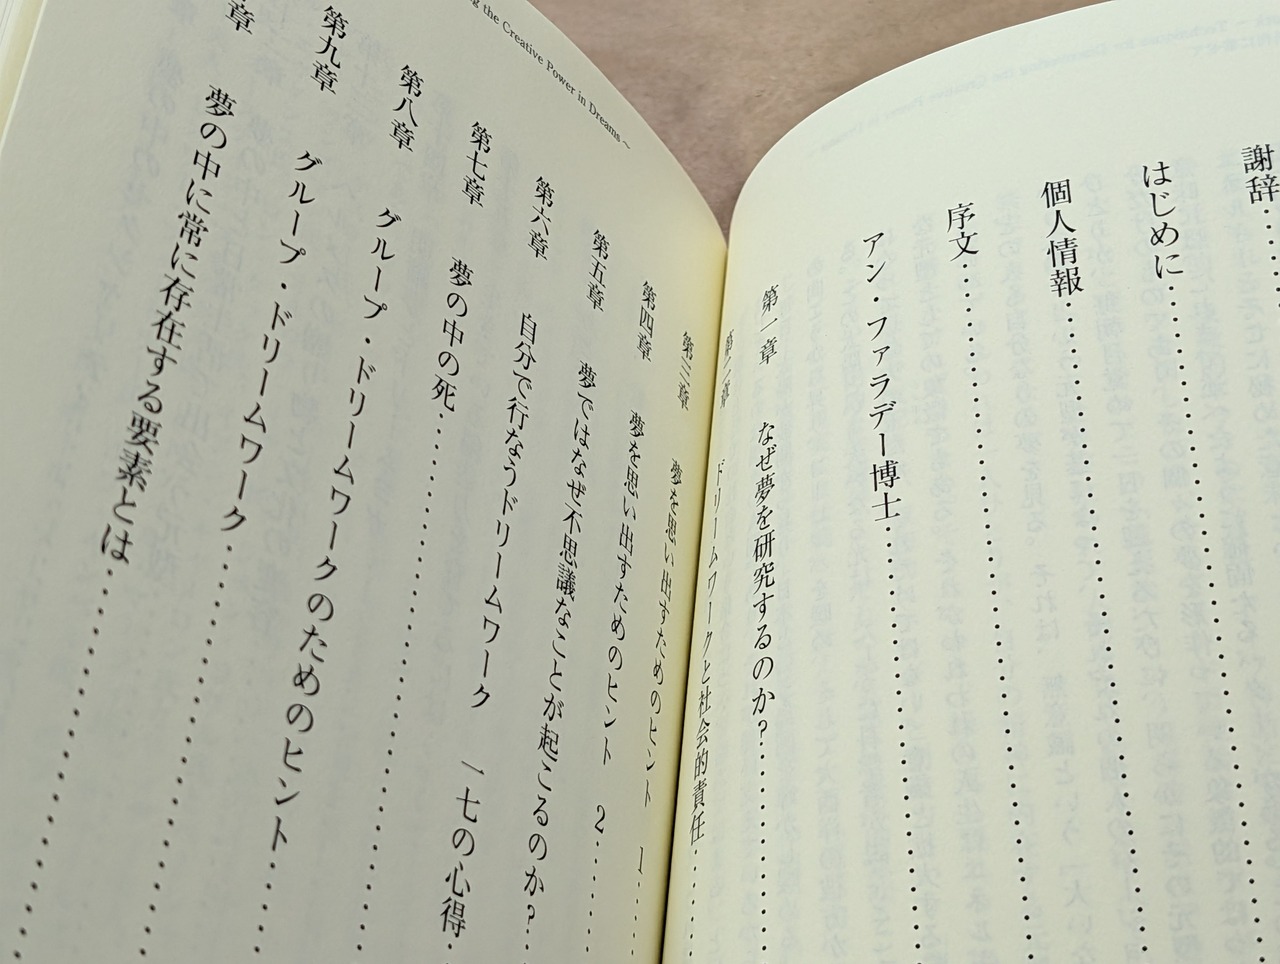 謝辞
はじめに
個人情報
序文
アン・ファラデー博士
第一章 なぜ夢を研究するのか？
第二章 ドリームワークと社会的責任
第三章 夢を思い出すためのヒント 1
第四章 夢を思い出すためのヒント 2
第五章 夢ではなぜ不思議なことが起こるのか？
第六章 自分で行なうドリームワーク 一七の心得
第七章 夢の中の死
第八章 グループ・ドリームワークのためのヒント
第九章 グループ・ドリームワーク
章 夢の中に常に存在する要素とは
the Creative Power in Dreams～